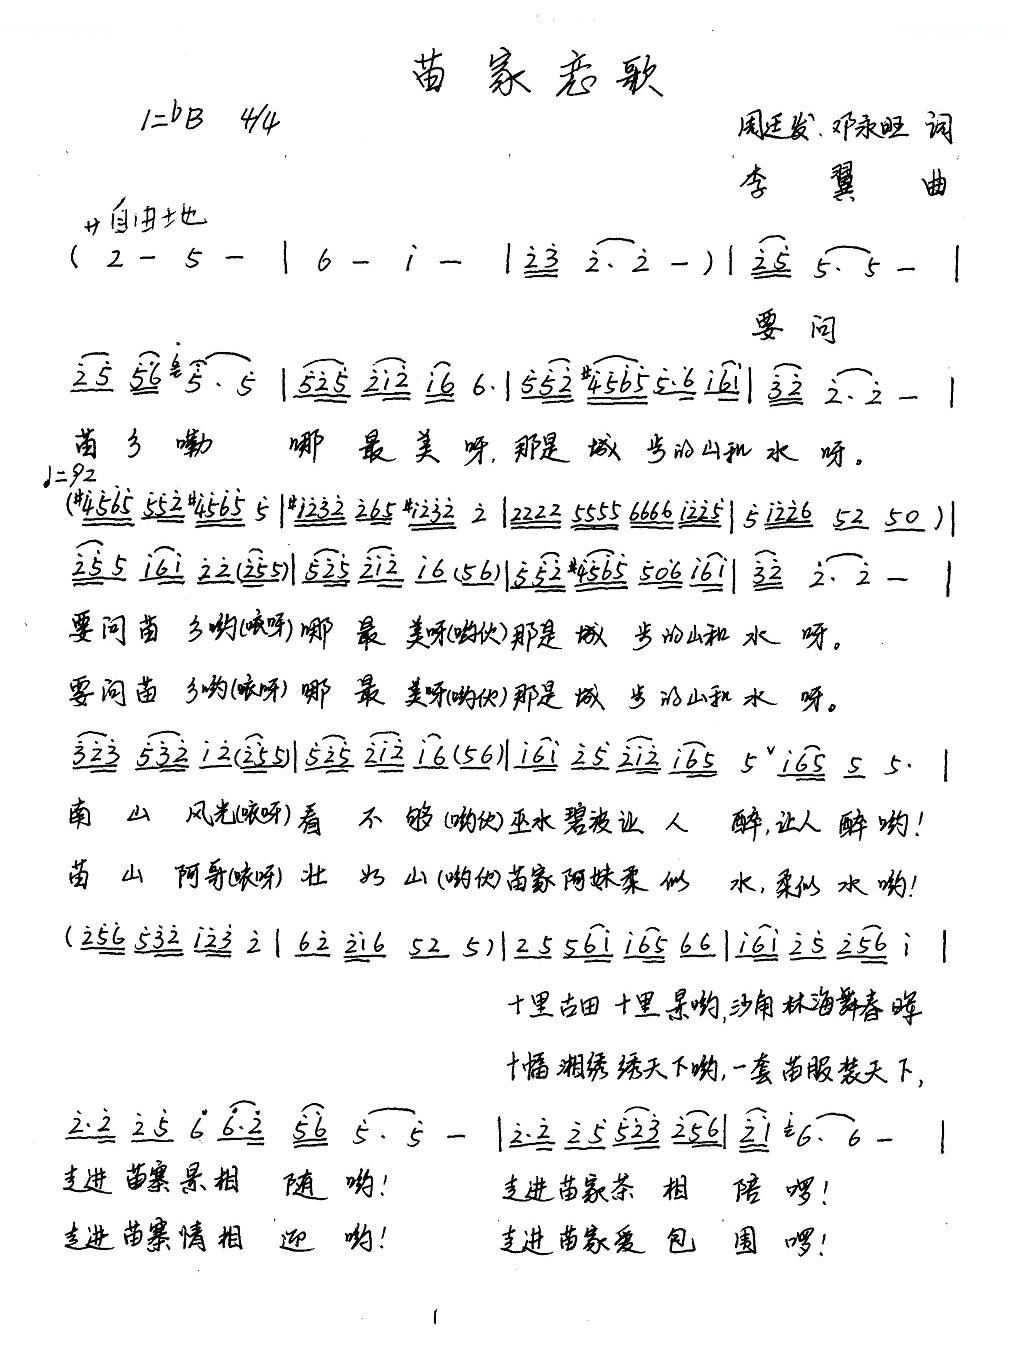 苗家恋歌
1=♭B 4/4
周廷发、邓永旺 词
李翼 曲
サ自由地
( 2 - 5 - | 6 - i - | 23 2· 2 - ) | 25 5· 5 - |
要问
25 56 6 5· 5 | 525 212 i6 6· | 552 #4565 5·6 i6i | 32 2· 2 - |
苗乡嘞 哪最美呀,那是城步的山和水呀。
♩=92
(#4565 552 #4565 5 | #1232 265 #1232 2 | 2222 5555 6666 i225 | 5 i226 52 50 ) |
255 i6i 22(255) | 525 212 i6(56) | 552 #4565 506 i6i | 32 2· 2 - |
要问苗乡哟(咳呀)哪最美呀(哟伙)那是城步的山和水呀。
要问苗乡哟(咳呀)哪最美呀(哟伙)那是城步的山和水呀。
323 532 i2(255) | 525 212 i6(56) | i6i 25 2i2 i65 5 ∨ i65 5 5· |
南山风光(咳呀)看不够(哟伙)巫水碧波让人醉,让人醉哟!
苗山阿哥(咳呀)壮如山(哟伙)苗家阿妹柔似水,柔似水哟!
(256 532 i23 2 | 62 2i6 52 5) | 25 56i i65 66 | i6i 25 256 i |
十里古田十里景哟,沙角林海舞春晖
十幅湘绣绣天下哟,一套苗服装天下,
2·2 25 6 6·2 56 5· 5 - | 2·2 25 523 256 | 2i 6· 6 - |
走进苗寨景相随哟! 走进苗家茶相陪啰!
走进苗寨情相迎哟! 走进苗家爱包围啰!
1